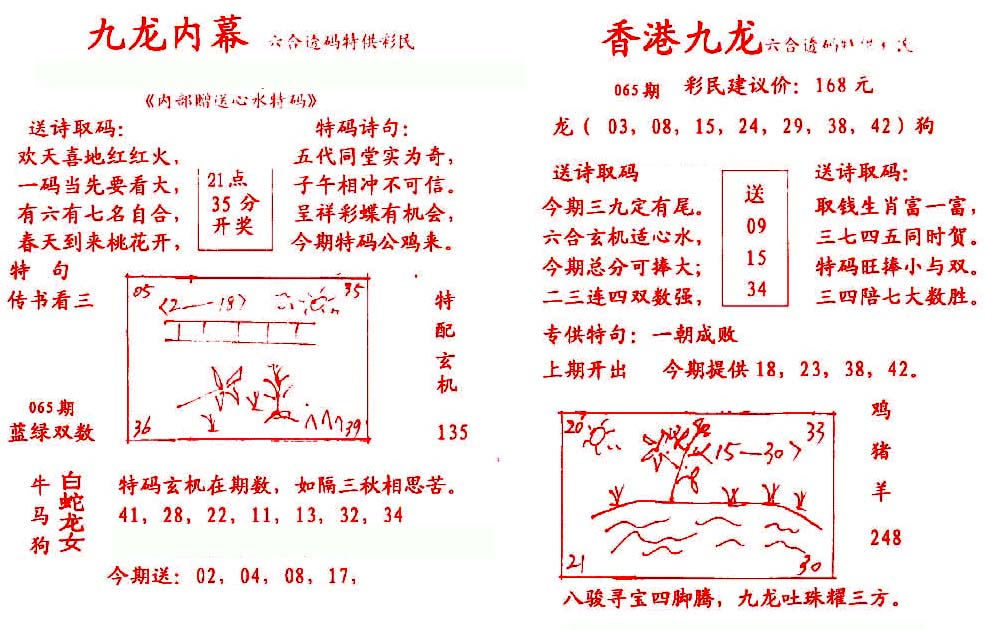 九龙内幕 六合透码特供彩民
《内部赠送心水特码》
送诗取码：
欢天喜地红红火，
一码当先要看大，
有六有七名自合，
春天到来桃花开，
21点
35分
开奖
特码诗句：
五代同堂实为奇，
子午相冲不可信。
呈祥彩蝶有机会，
今期特码公鸡来。
特 句
传书看三
065期
蓝绿双数
05
35
〈2—18〉
36
39
特配玄机
135
牛马狗
白蛇龙女
特码玄机在期数，如隔三秋相思苦。
41，28，22，11，13，32，34
今期送：02，04，08，17，
香港九龙 六合透码特供彩民
065期 彩民建议价：168元
龙（ 03，08，15，24，29，38，42）狗
送诗取码
今期三九定有尾。
六合玄机适心水，
今期总分可捧大；
二三连四双数强，
送
09
15
34
送诗取码：
取钱生肖富一富，
三七四五同时贺。
特码旺捧小与双。
三四陪七大数胜。
专供特句：一朝成败
上期开出 今期提供18，23，38，42。
20
33
〈15—30〉
21
30
鸡
猪
羊
248
八骏寻宝四脚腾，九龙吐珠耀三方。